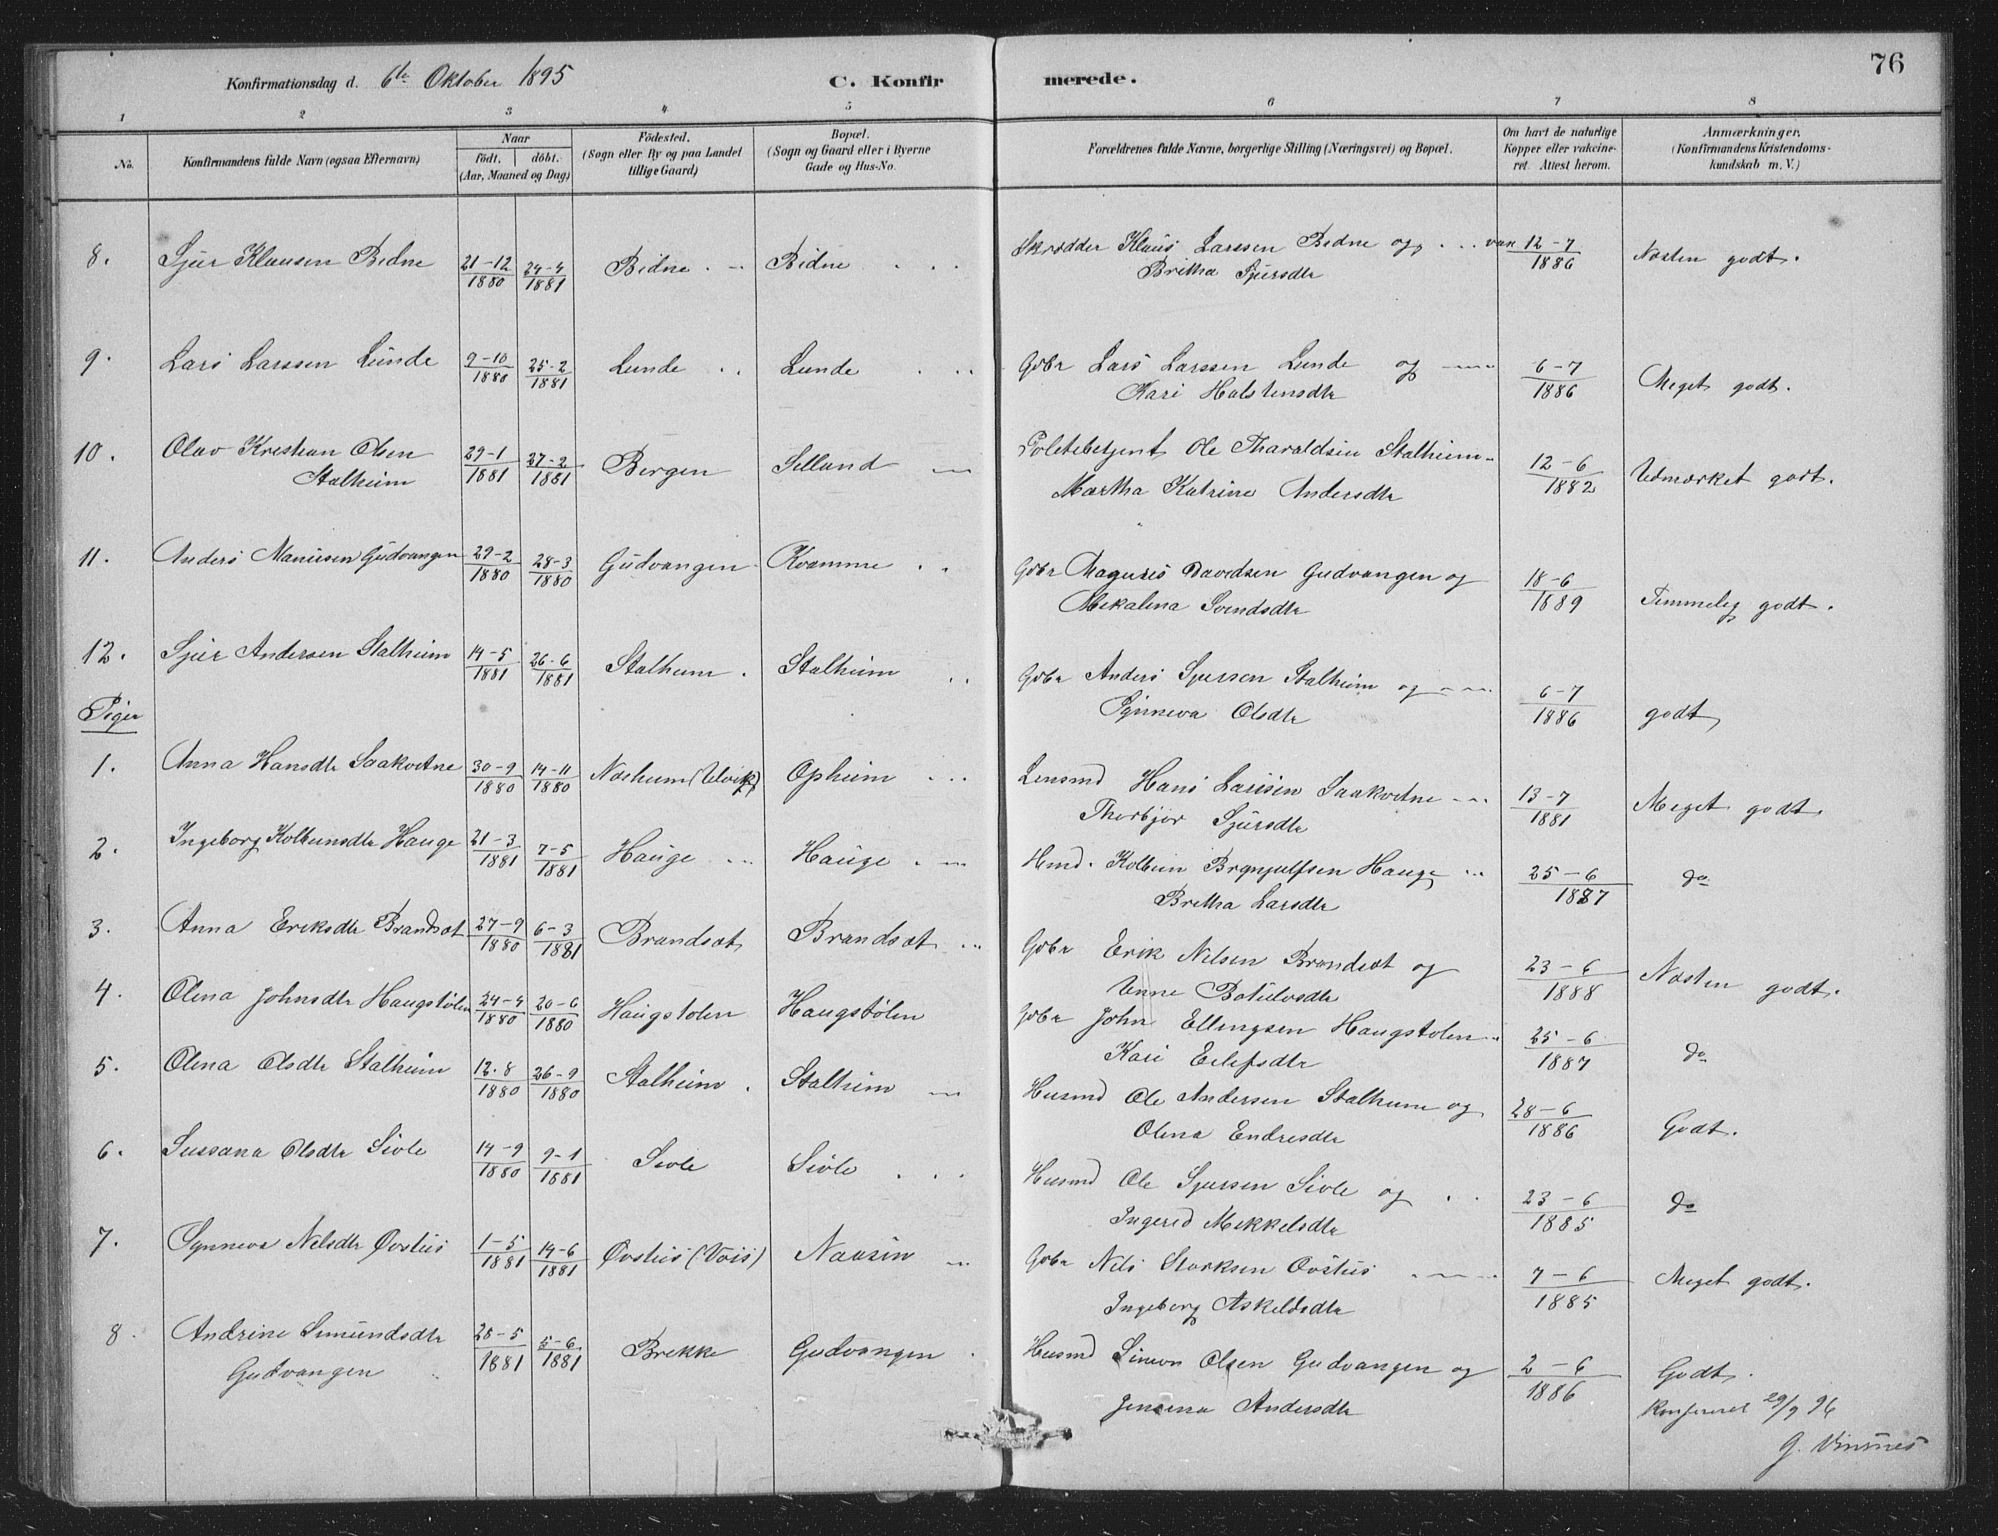 76
Konfirmationsdag d. 6te Oktober 1895 C. Konfirmerede.
1 2 3 4 5 6 7 8
No. Konfirmandens fulde Navn (ogsaa Efternavn) Naar født. døbt. (Aar, Maaned og Dag) Fødested. (Sogn eller By og paa Landet tillige Gaard) Bopæl. (Sogn og Gaard eller i Byerne Gade og Hus-No. Forældrenes fulde Navne, borgerlige Stilling (Næringsvei) og Bopæl. Om havt de naturlige Kopper eller vakcineret. Attest herom. Anmærkninger. (Konfirmandens Kristendomskundskab m. V.)
8. Sjur Klausen Bidne 21-12 1880 24-4 1881 Bidne Bidne Skrædder Klaus Larssen Bidne og vak 12-7 1886 Næsten godt.
Britha Sjursdtr
9. Lars Larssen Lunde 9-10 1880 25-2 1881 Lunde Lunde Gdbr Lars Larssen Lunde og 6-7 1886 Meget godt.
Kari Halstensdtr
10. Olav Kristian Olsen 29-1 1881 27-2 1881 Bergen Selland Politebetjent Ole Tharaldsen Stalheim 12-6 1882 Udmærket godt.
Stalheim Martha Katrine Andersdtr
11. Anders Manusen Gudvangen 29-2 1880 28-3 1880 Gudvangen Kvamme Gdbr Magnus Davidsen Gudvangen og 18-6 1889 Temmelig godt.
Mikalena Svendsdtr
12. Sjur Andersen Stalheim 14-5 1881 26-6 1881 Stalheim Stalheim Gdbr Anders Sjurssen Stalheim og 6-7 1886 godt
Synneva Olsdtr
Piger
1. Anna Hansdtr Saakvitne 30-9 1880 14-11 1880 Næsheim (Ulvik) Opheim Lensmd Hans Larssen Saakvitne 13-7 1881 Meget godt.
Thorbjør Sjursdtr
2. Ingeborg Kolbeinsdtr Hauge 21-3 1881 7-5 1881 Hauge Hauge Hmd. Kolbein Brynjulfsen Hauge 25-6 1887 do
Britha Larsdtr
3. Anna Eriksdtr Brandsæt 27-9 1880 6-3 1881 Brandsæt Brandsæt Gdbr Erik Nilsen Brandsæt og 23-6 1888 Næsten godt.
Unne Botulvsdtr
4. Olena Johnsdtr Haugstølen 24-4 1880 20-6 1880 Haugstølen Haugstølen Gdbr John Ellingsen Haugstølen 25-6 1887 do
Kari Eilefsdtr
5. Olena Olsdtr Stalheim 12.8 1880 26-9 1880 Stalheim Stalheim Husmd Ole Andersen Stalheim og 28-6 1886 Godt.
Olena Endresdtr
6. Sussana Olsdtr Sivle 14-9 1880 9-1 1881 Sivle Sivle Husmd Ole Sjurssen Sivle og 23-6 1885 do
Ingerid Mikkelsdtr
7. Synneva Nilsdtr Øvstus 1-5 1881 14-6 1881 Øvstus (Voss) Naasin Gdbr Nils Storksen Øvstus 7-6 1885 Meget godt.
Ingeborg Askeldsdtr
8 Andrine Simundsdtr 25-5 1881 5-6 1881 Brekke Gudvangen Husmd Simon Olsen Gudvangen og 2-6 1886 Godt
Gudvangen Jensena Andersdtr
Konfereret 29/9 96
G. Vinsnes